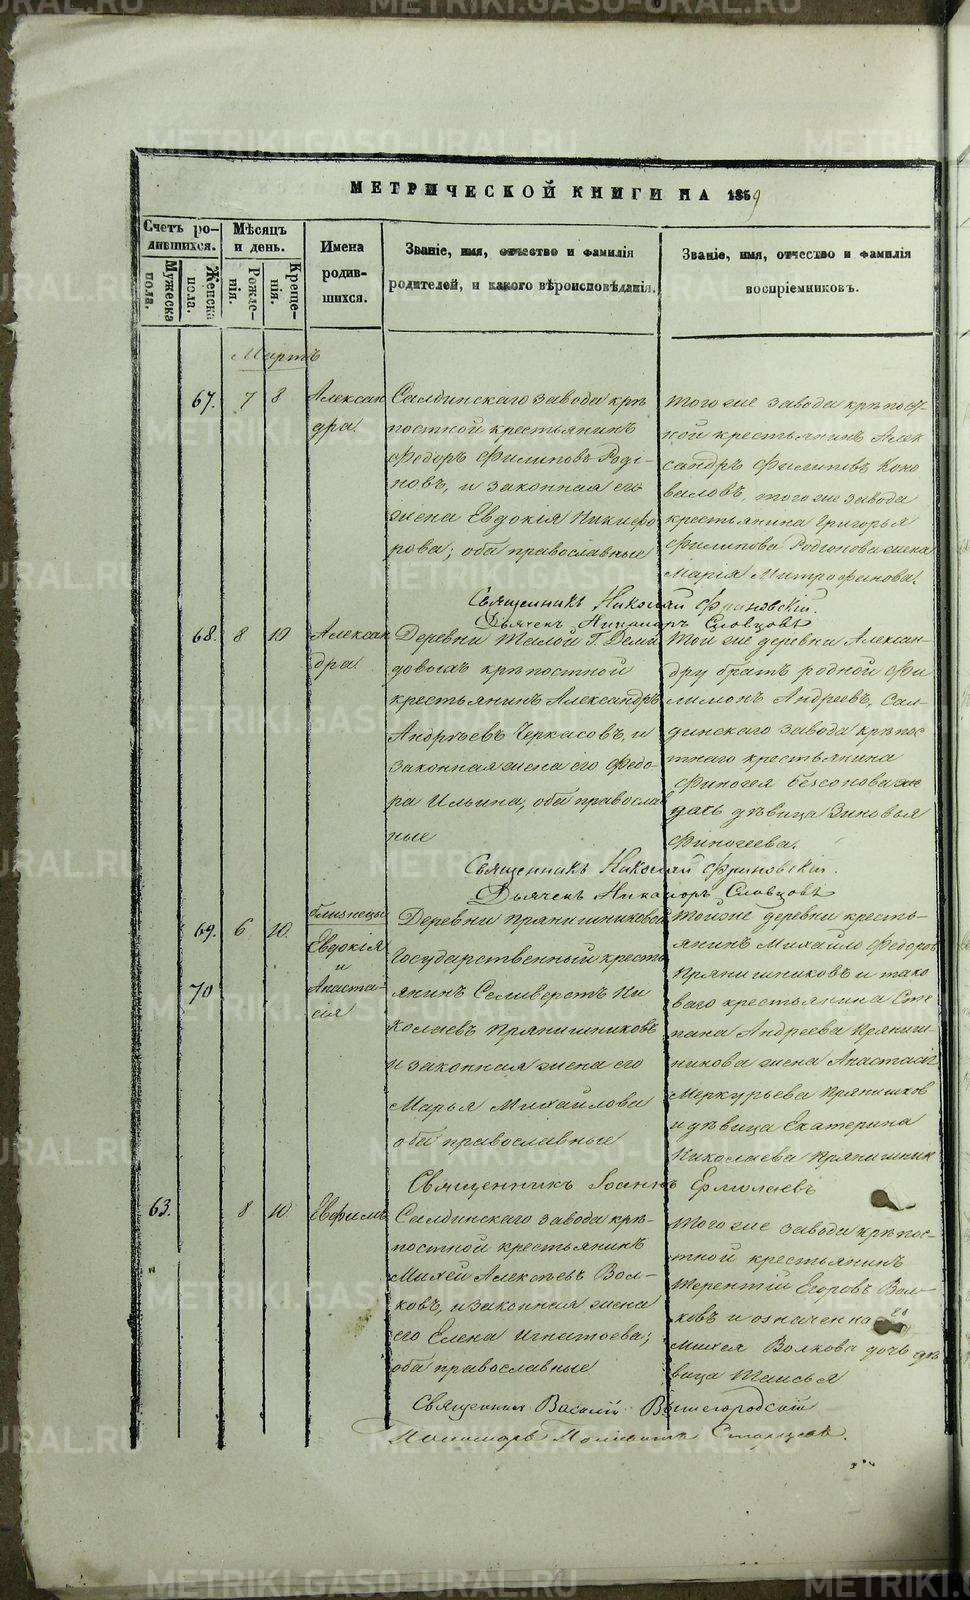 МЕТРИЧЕСКОЙ КНИГИ НА 1859
Счетъ ро-
дившихся.
Мѣсяцъ
и день.
Имена
родив-
шихся.
Званіе, имя, отчество и фамилія
родителей, и какого вѣроисповѣданія.
Званіе, имя, отчество и фамилія
воспріемниковъ.
Мужеска
пола.
Женска
пола.
Рожде-
нія.
Креще-
нія.
Мартъ
67. 7 8
Алексан
дра
Салдинскаго завода крѣ
постной крестьянинъ
Федоръ Филиповъ Родi-
новъ, и законная его
жена Евдокія Никифо
рова; оба православные
того же завода крѣпост-
ной крестьянинъ Алек
сандръ Филиповъ Коно
валовъ, того же завода
крестьянина Григорья
Филипова Родіонова жена
Марія Митрофанова.
Священникъ Николай Фриновскій.
Дьячекъ Никаноръ Словцовъ
68. 8 10
Алексан
дра
Деревни Малой Г. Деми
довыхъ крѣпостной
крестьянинъ Александръ
Андрѣевъ Черкасовъ, и
законная жена его Федо-
ра Ильина, оба православ
ные
Той же деревни Алексан-
дру братъ родной Фи
лимонъ Андреевъ, Сал-
динскаго завода крѣпос
тнаго крестьянина
Финогея Безсонова
дочь дѣвица Зиновья
Финогеева.
Священникъ Николай Фриновскій.
Дьячекъ Никаноръ Словцовъ
69. 6 10.
70
близнецы
Евдокія
и
Анаста-
сія
Деревни Прянишниковой
Государственный кресть
янинъ Селиверстъ Ни
колаевъ Прянишниковъ
и законная жена его
Марья Михайлова
оба православные
Той же деревни кресть-
янинъ Михайло Федоровъ
Прянишниковъ и тако
ваго крестьянина Сте
пана Андреева Пряниш
никова жена Анастасія
Меркурьева Прянишков
и дѣвица Екатерина
Николаева Прянишник
Священникъ Іоаннъ Ермолаевъ
63. 8 10.
Евфимъ
Салдинскаго завода крѣ-
постной крестьянинъ
Михей Алексѣевъ Вол-
ковъ, и законная жена
его Елена Игнатьева;
оба православные
Того же завода крѣпос-
тной крестьянинъ
Терентій Егоровъ Вол-
ковъ и означенна
Михея Волкова дочь дѣ
вица Таисья
Священникъ Василій Вышегородскій
Пономарь Старцевъ.
METRIKI.GASO-URAL.RU